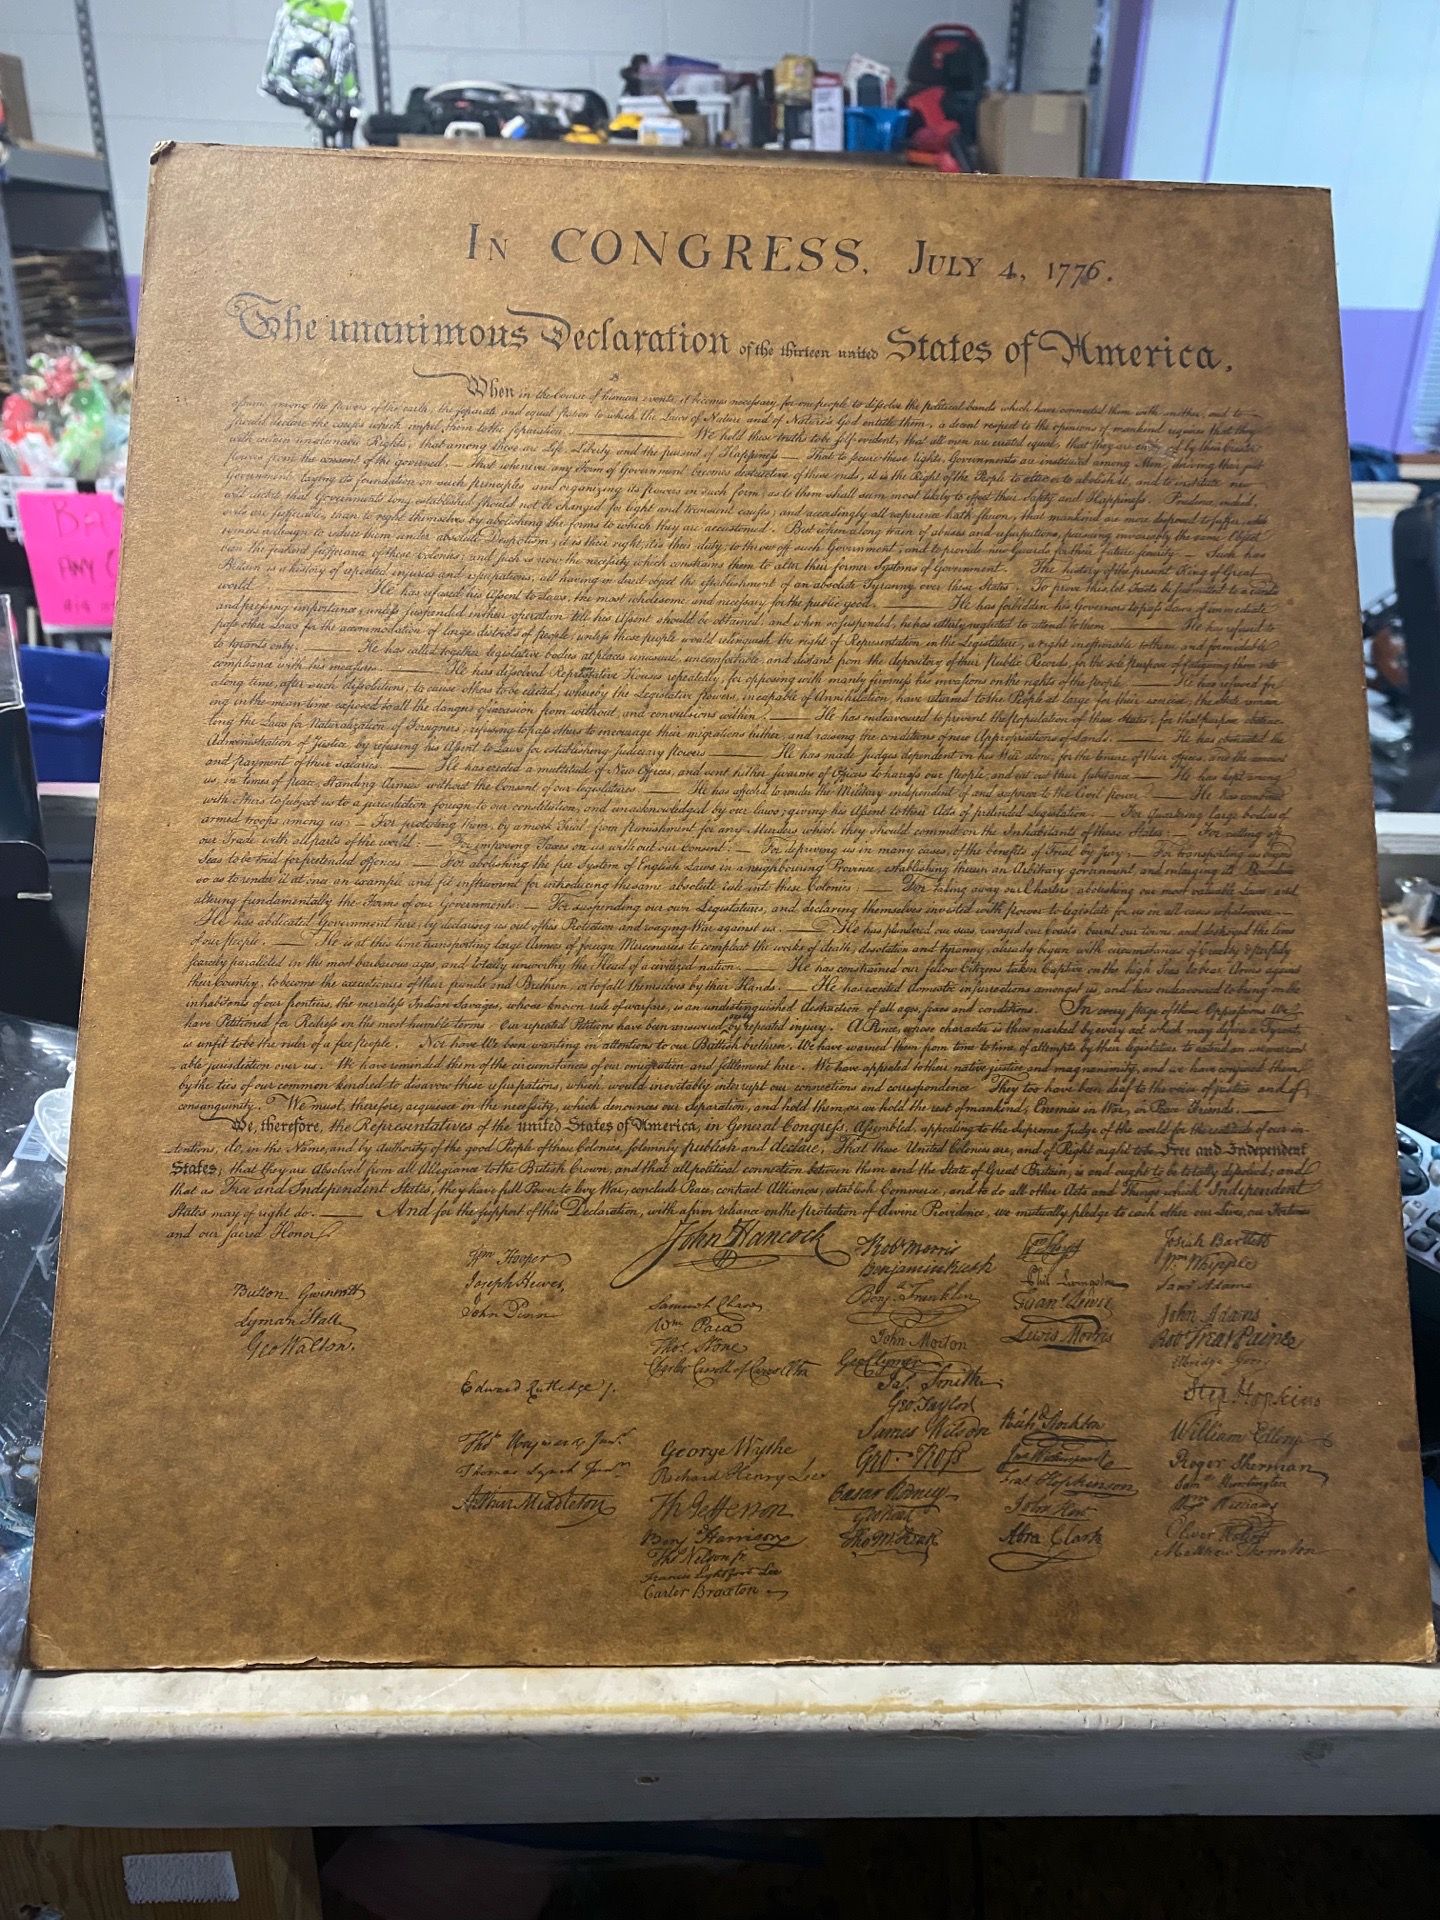 IN CONGRESS, JULY 4, 1776.
The unanimous Declaration of the thirteen united States of America,
When in the Course of human events, it becomes necessary for one people to dissolve the political bands which have connected them with another, and to
assume among the powers of the earth, the separate and equal station to which the Laws of Nature and of Nature's God entitle them, a decent respect to the opinions of mankind requires that they
should declare the causes which impel them to the separation. We hold these truths to be self-evident, that all men are created equal, that they are endowed by their Creator
with certain unalienable Rights, that among these are Life, Liberty and the pursuit of Happiness — That to secure these rights, Governments are instituted among Men, deriving their just
powers from the consent of the governed, — That whenever any Form of Government becomes destructive of these ends, it is the Right of the People to alter or to abolish it, and to institute new
Government, laying its foundation on such principles and organizing its powers in such form, as to them shall seem most likely to effect their Safety and Happiness. Prudence, indeed,
will dictate that Governments long established should not be changed for light and transient causes; and accordingly all experience hath shewn, that mankind are more disposed to suffer, while
evils are sufferable, than to right themselves by abolishing the forms to which they are accustomed. But when a long train of abuses and usurpations, pursuing invariably the same Object
evinces a design to reduce them under absolute Despotism, it is their right, it is their duty, to throw off such Government, and to provide new Guards for their future security. — Such has
been the patient sufferance of these Colonies; and such is now the necessity which constrains them to alter their former Systems of Government. The history of the present King of Great
Britain is a history of repeated injuries and usurpations, all having in direct object the establishment of an absolute Tyranny over these States. To prove this, let Facts be submitted to a candid
world. — He has refused his Assent to Laws, the most wholesome and necessary for the public good. — He has forbidden his Governors to pass Laws of immediate
and pressing importance, unless suspended in their operation till his Assent should be obtained; and when so suspended, he has utterly neglected to attend to them. — He has refused to
pass other Laws for the accommodation of large districts of people, unless those people would relinquish the right of Representation in the Legislature, a right inestimable to them and formidable
to tyrants only. — He has called together legislative bodies at places unusual, uncomfortable, and distant from the depository of their Public Records, for the sole purpose of fatiguing them into
compliance with his measures. — He has dissolved Representative Houses repeatedly, for opposing with manly firmness his invasions on the rights of the people. — He has refused for
a long time, after such dissolutions, to cause others to be elected; whereby the Legislative powers, incapable of Annihilation, have returned to the People at large for their exercise; the State remain
ing in the mean time exposed to all the dangers of invasion from without, and convulsions within. — He has endeavoured to prevent the population of these States; for that purpose obstruc-
ting the Laws for Naturalization of Foreigners; refusing to pass others to encourage their migrations hither, and raising the conditions of new Appropriations of Lands. — He has obstructed the
Administration of Justice, by refusing his Assent to Laws for establishing Judiciary powers. — He has made Judges dependent on his Will alone, for the tenure of their offices, and the amount
and payment of their salaries. — He has erected a multitude of New Offices, and sent hither swarms of Officers to harrass our people, and eat out their substance. — He has kept among
us, in times of peace, Standing Armies without the Consent of our legislatures. — He has affected to render the Military independent of and superior to the Civil power. — He has combined
with others to subject us to a jurisdiction foreign to our constitution, and unacknowledged by our laws; giving his Assent to their Acts of pretended Legislation: — For Quartering large bodies of
armed troops among us: — For protecting them, by a mock Trial, from punishment for any Murders which they should commit on the Inhabitants of these States: — For cutting off
our Trade with all parts of the world: — For imposing Taxes on us without our Consent: — For depriving us in many cases, of the benefits of Trial by Jury: — For transporting us beyond
Seas to be tried for pretended offences: — For abolishing the free System of English Laws in a neighbouring Province, establishing therein an Arbitrary government, and enlarging its Boundaries
so as to render it at once an example and fit instrument for introducing the same absolute rule into these Colonies: — For taking away our Charters, abolishing our most valuable Laws, and
altering fundamentally the Forms of our Governments: — For suspending our own Legislatures, and declaring themselves invested with power to legislate for us in all cases whatsoever. —
He has abdicated Government here, by declaring us out of his Protection and waging War against us. — He has plundered our seas, ravaged our Coasts, burnt our towns, and destroyed the lives
of our people. — He is at this time transporting large Armies of foreign Mercenaries to compleat the works of death, desolation and tyranny, already begun with circumstances of Cruelty & perfidy
scarcely paralleled in the most barbarous ages, and totally unworthy the Head of a civilized nation. — He has constrained our fellow Citizens taken Captive on the high Seas to bear Arms against
their Country, to become the executioners of their friends and Brethren, or to fall themselves by their Hands. — He has excited domestic insurrections amongst us, and has endeavoured to bring on the
inhabitants of our frontiers, the merciless Indian Savages, whose known rule of warfare, is an undistinguished destruction of all ages, sexes and conditions. In every stage of these Oppressions We
have Petitioned for Redress in the most humble terms: Our repeated Petitions have been answered only by repeated injury. A Prince, whose character is thus marked by every act which may define a Tyrant,
is unfit to be the ruler of a free people. Nor have We been wanting in attentions to our Brittish brethren. We have warned them from time to time of attempts by their legislature to extend an unwarrant
able jurisdiction over us. We have reminded them of the circumstances of our emigration and settlement here. We have appealed to their native justice and magnanimity, and we have conjured them
by the ties of our common kindred to disavow these usurpations, which, would inevitably interrupt our connections and correspondence. They too have been deaf to the voice of justice and of
consanguinity. We must, therefore, acquiesce in the necessity, which denounces our Separation, and hold them, as we hold the rest of mankind, Enemies in War, in Peace Friends. —
We, therefore, the Representatives of the united States of America, in General Congress, Assembled, appealing to the Supreme Judge of the world for the rectitude of our in-
tentions, do, in the Name, and by Authority of the good People of these Colonies, solemnly publish and declare, That these United Colonies are, and of Right ought to be Free and Independent
States; that they are Absolved from all Allegiance to the British Crown, and that all political connection between them and the State of Great Britain, is and ought to be totally dissolved; and
that as Free and Independent States, they have full Power to levy War, conclude Peace, contract Alliances, establish Commerce, and to do all other Acts and Things which Independent
States may of right do. — And for the support of this Declaration, with a firm reliance on the protection of divine Providence, we mutually pledge to each other our Lives, our Fortunes
and our sacred Honor.
Button Gwinnett
Lyman Hall
Geo Walton.
Wm Hooper
Joseph Hewes,
John Penn
Edward Rutledge /.
Thos Heyward Junr.
Thomas Lynch Junr.
Arthur Middleton
John Hancock
Samuel Chase
Wm Paca
Thos Stone
Charles Carroll of Carrollton
George Wythe
Richard Henry Lee
Th Jefferson
Benj Harrison
Thos Nelson jr.
Francis Lightfoot Lee
Carter Braxton
Robt Morris
Benjamin Rush
Benj. Franklin
John Morton
Geo Clymer
Jas. Smith
Geo. Taylor
James Wilson
Geo. Ross
Caesar Rodney
Geo Read
Tho M:Kean
Wm Floyd
Phil. Livingston
Frans. Lewis
Lewis Morris
Richd. Stockton
Jno Witherspoon
Fras. Hopkinson
John Hart
Abra Clark
Josiah Bartlett
Wm: Whipple
Saml Adams
John Adams
Robt Treat Paine
Elbridge Gerry
Step. Hopkins
William Ellery
Roger Sherman
Saml Huntington
Wm Williams
Oliver Wolcott
Matthew Thornton
BA
ANY